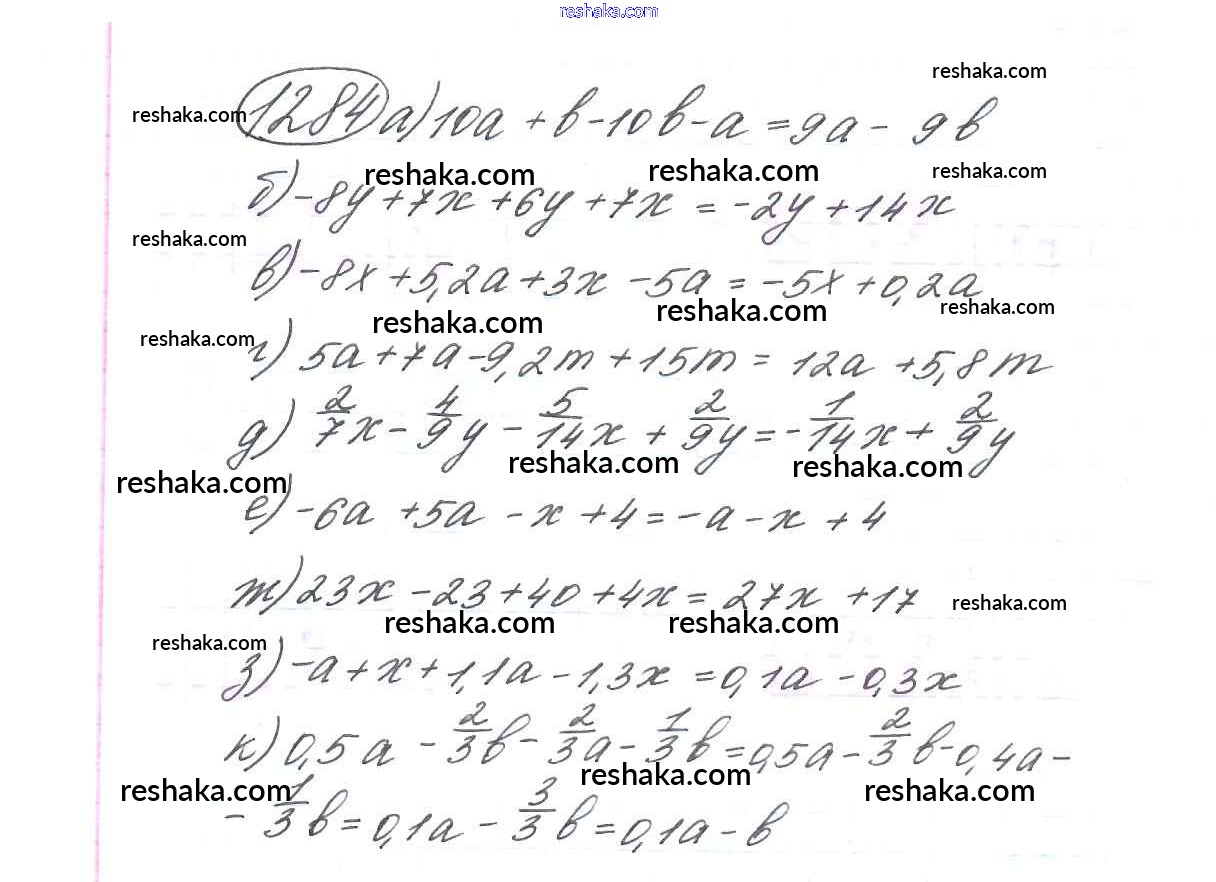 reshaka.com
reshaka.com
reshaka.com
1284 а) 10a + b - 10b - a = 9a - 9b
reshaka.com reshaka.com reshaka.com
б) -8y + 7x + 6y + 7x = -2y + 14x
reshaka.com
в) -8x + 5,2a + 3x - 5a = -5x + 0,2a
reshaka.com reshaka.com reshaka.com
reshaka.com
г) 5a + 7a - 9,2m + 15m = 12a + 5,8m
д) 2/7x - 4/9y - 5/14x + 2/9y = -1/14x + 2/9y
reshaka.com reshaka.com reshaka.com
е) -6a + 5a - x + 4 = -a - x + 4
ж) 23x - 23 + 40 + 4x = 27x + 17
reshaka.com reshaka.com reshaka.com
reshaka.com
з) -a + x + 1,1a - 1,3x = 0,1a - 0,3x
к) 0,5a - 2/3b - 2/3a - 1/3b = 0,5a - 2/3b - 0,4a -
reshaka.com reshaka.com reshaka.com
- 1/3b = 0,1a - 3/3b = 0,1a - b